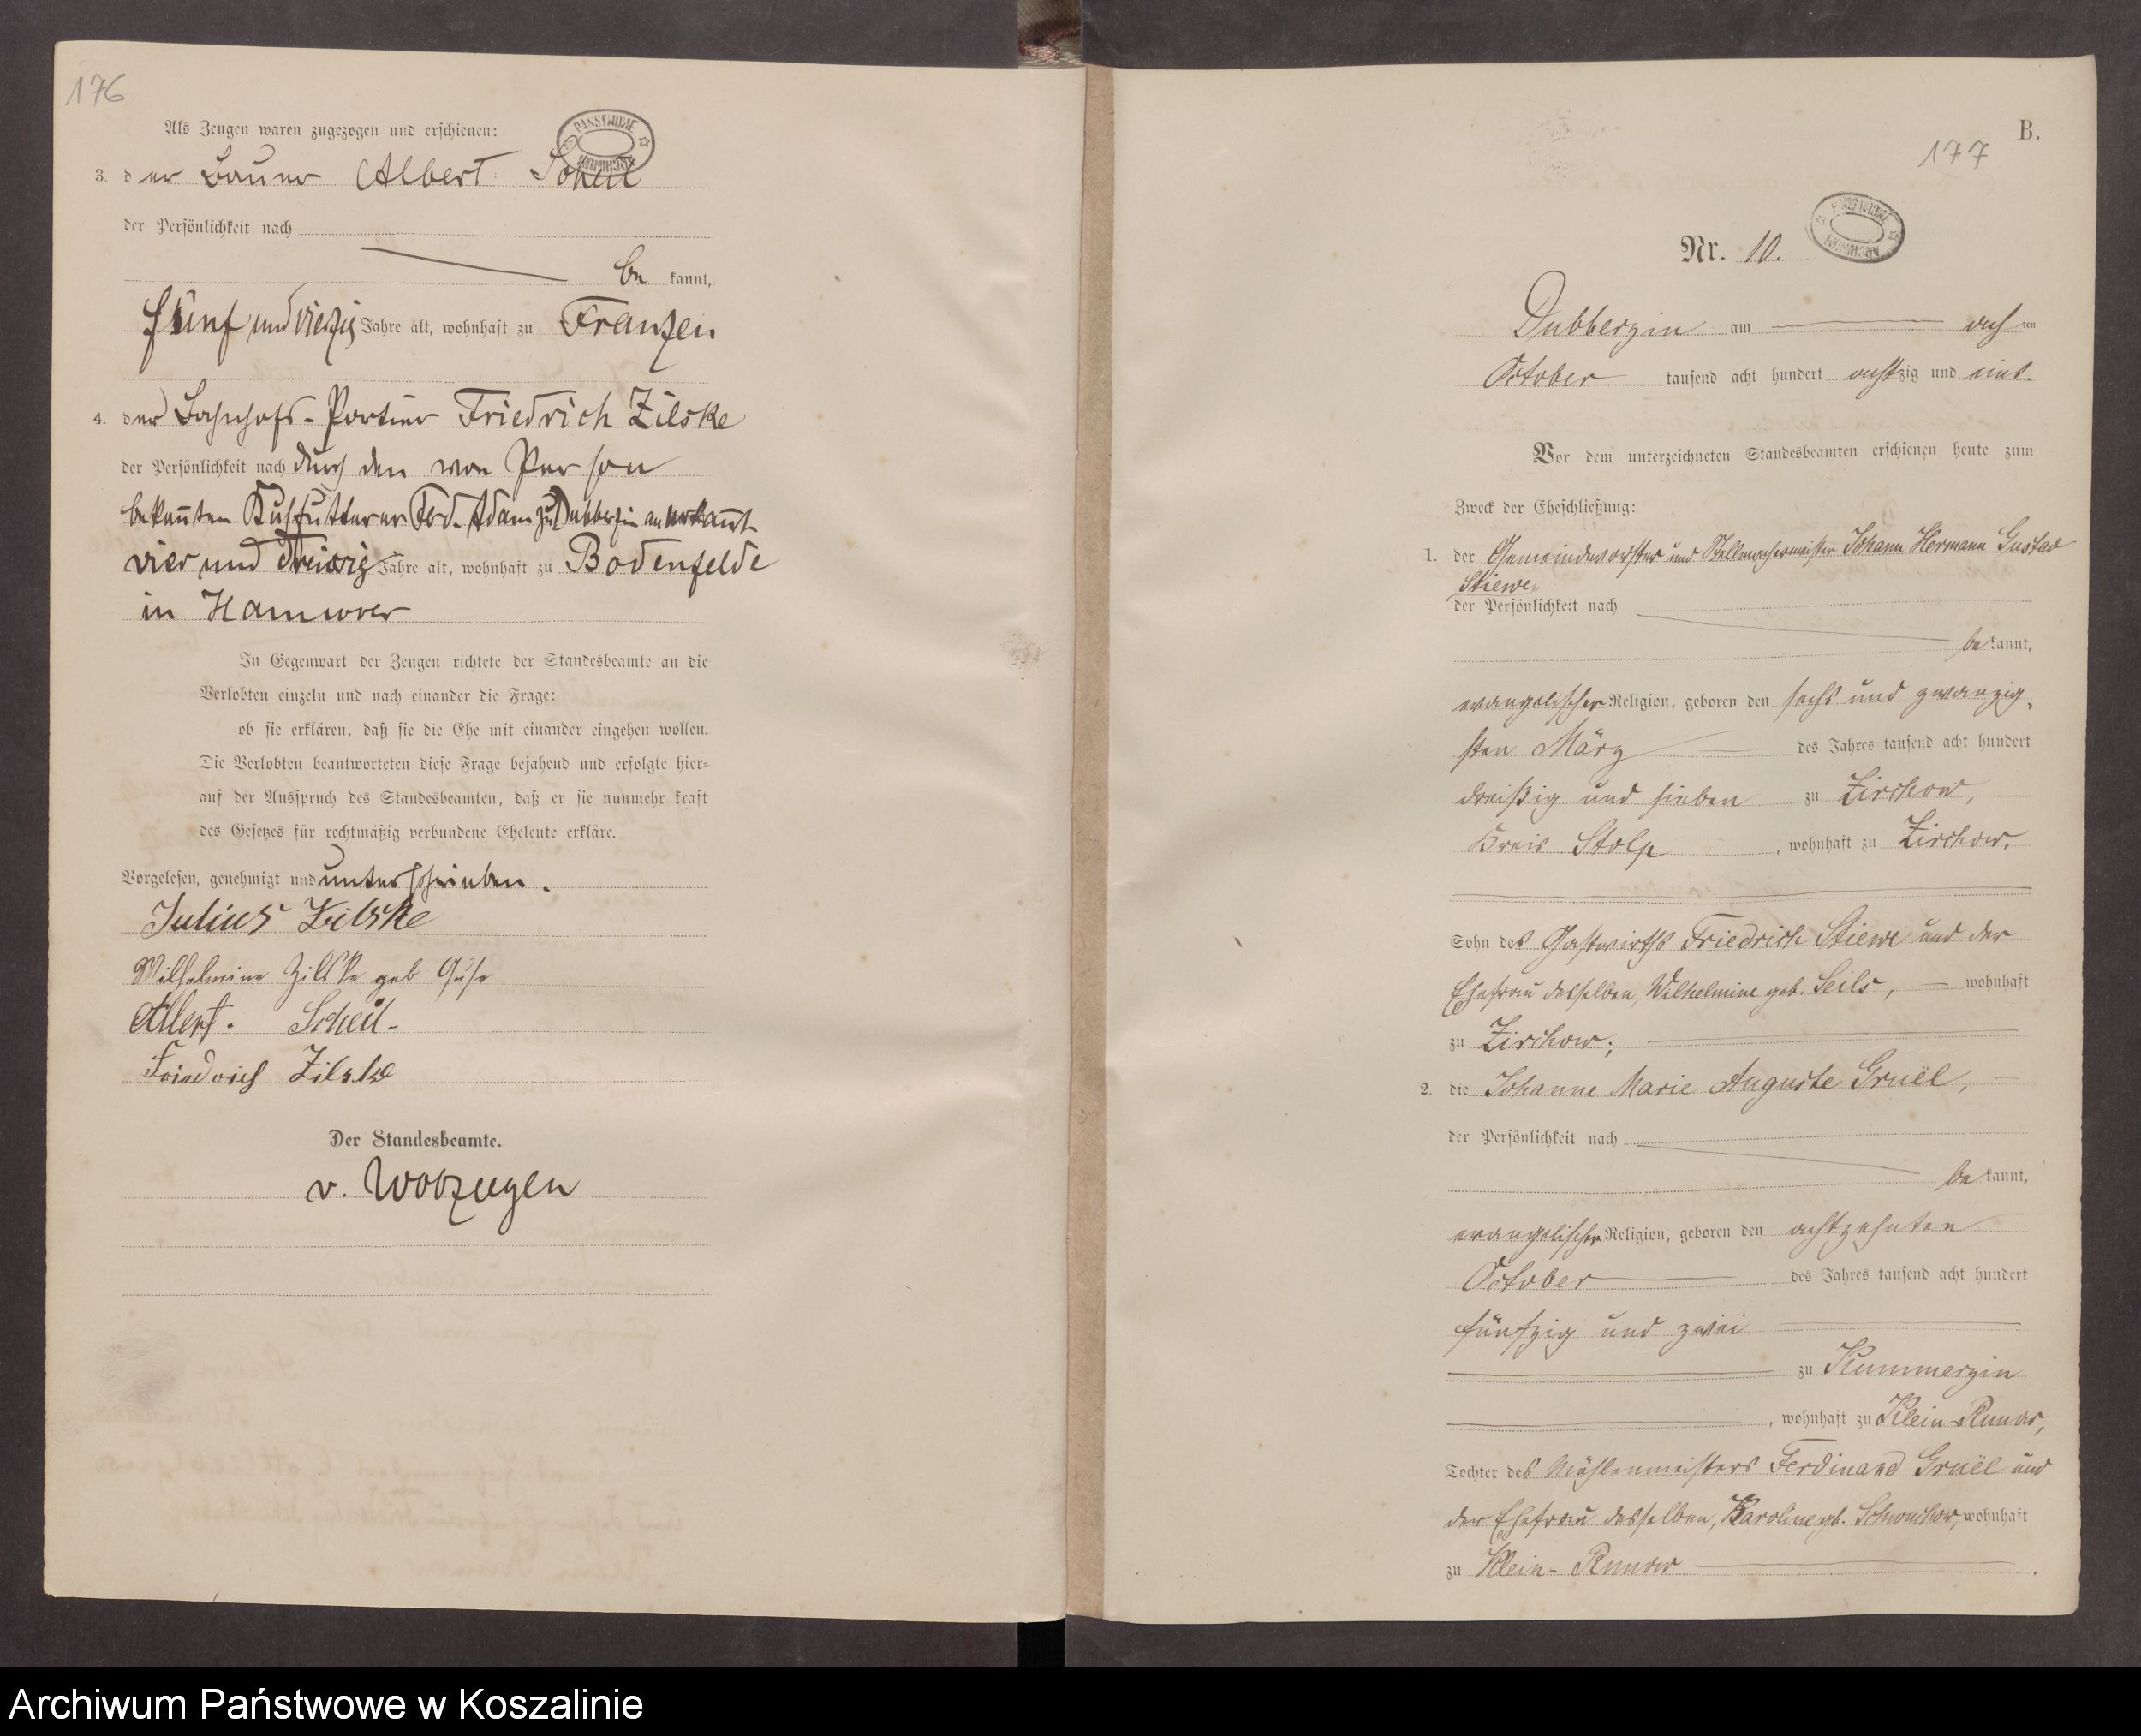 176
Als Zeugen waren zugezogen und erschienen:
PAŃSTWOWE
ARCHIWUM
3. der Bauer Albert Scheil
der Persönlichkeit nach
be kannt,
fünf und vierzig Jahre alt, wohnhaft zu Franzen
4. der Bahnhofs-Portier Friedrich Zilske
der Persönlichkeit nach durch den von Person
bekannten Kuhfutterer Ferd. Adam zu Dubberzin anerkannt
vier und dreissig Jahre alt, wohnhaft zu Bodenfelde
in Hannover
In Gegenwart der Zeugen richtete der Standesbeamte an die
Verlobten einzeln und nach einander die Frage:
ob sie erklären, daß sie die Ehe mit einander eingehen wollen.
Die Verlobten beantworteten diese Frage bejahend und erfolgte hier-
auf der Ausspruch des Standesbeamten, daß er sie nunmehr kraft
des Gesetzes für rechtmäßig verbundene Eheleute erkläre.
Vorgelesen, genehmigt und unterschrieben.
Julius Zilske
Wilhelmine Zilske geb Guse
Albert. Scheil-
Friedrich Zilske
Der Standesbeamte.
v.
B.
177
PAŃSTWOWE
ARCHIWUM
Nr. 10.
Dubberzin am ten
October tausend acht hundert achtzig und eins.
Vor dem unterzeichneten Standesbeamten erschienen heute zum
Zweck der Eheschließung:
1. der Gemeindevorsteher und Stellmachermeister Johann Hermann Gustav
Stiewe,
der Persönlichkeit nach
be kannt,
evangelischer Religion, geboren den sechs und zwanzig-
sten März des Jahres tausend acht hundert
dreißig und sieben zu Zirchow,
Kreis Stolp, wohnhaft zu Zirchow,
Sohn des Gastwirths Friedrich Stiewe und der
Ehefrau desselben, Wilhelmine geb. Seils, wohnhaft
zu Zirchow;
2. die Johanne Marie Auguste Gruël,
der Persönlichkeit nach
be kannt,
evangelischer Religion, geboren den achtzehnten
October des Jahres tausend acht hundert
fünfzig und zwei
zu Kummerzin
, wohnhaft zu Klein-Runow,
Tochter des Mühlenmeisters Ferdinand Gruël und
der Ehefrau desselben, Karoline gb. wohnhaft
zu Klein-Runow
Archiwum Państwowe w Koszalinie